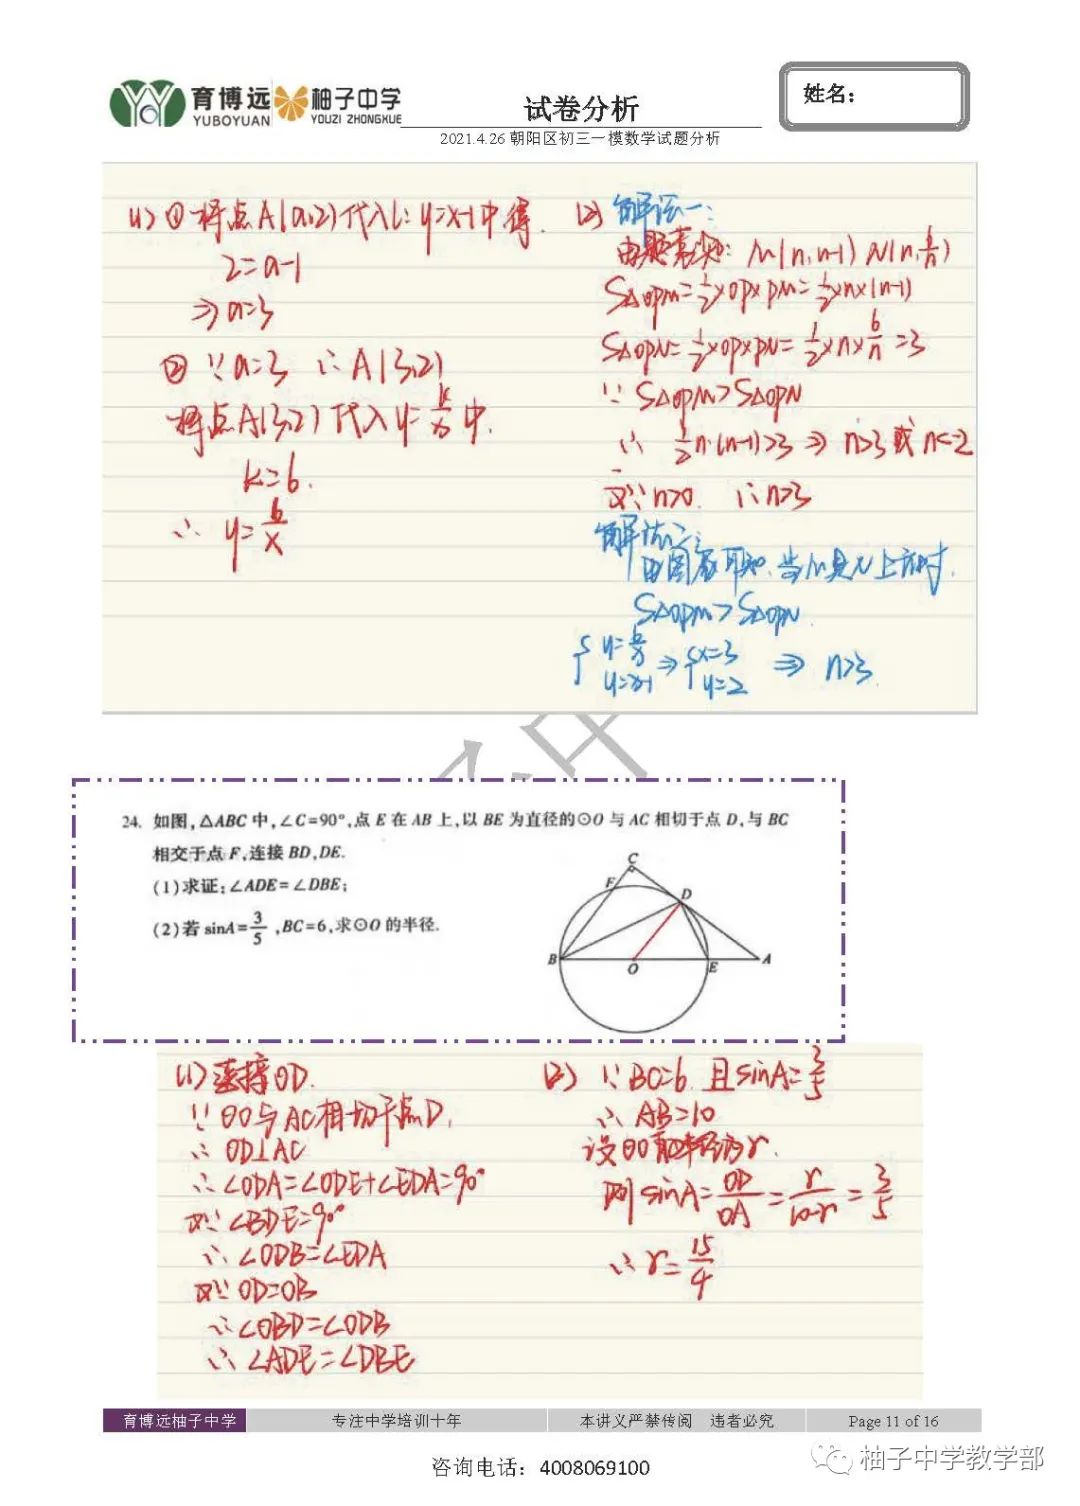 育博远
YUBOYUAN
柚子中学
YOUZI ZHONGXUE
试卷分析
姓名：
2021.4.26 朝阳区初三一模数学试题分析
(1) ① 将点A(a,2)代入l: y=x-1中得.
2=a-1
⇒ a=3
② ∵a=3 ∴A(3,2)
将点A(3,2)代入y=k/x中.
k=6.
∴ y=6/x
(2) 解法一:
由题意知: M(n,n-1) N(n,6/n)
S△OPM=1/2×OP×PM=1/2×n×(n-1)
S△OPN=1/2×OP×PN=1/2×n×6/n=3
∵ S△OPM>S△OPN
∴ 1/2n·(n-1)>3 ⇒ n>3或n<-2
又∵n>0. ∴n>3
解法二:
由图象可知.当M在N上方时.
S△OPM>S△OPN.
{y=6/x y=x-1 ⇒ {x=3 y=2 ⇒ n>3.
24. 如图,△ABC 中,∠C=90°,点 E 在 AB 上,以 BE 为直径的⊙O 与 AC 相切于点 D,与 BC
相交于点 F,连接 BD,DE.
(1)求证:∠ADE=∠DBE;
(2)若 sinA=3/5,BC=6,求⊙O 的半径.
C
F
D
B
O
E
A
(1) 连接OD.
∵ ⊙O与AC相切于点D.
∴ OD⊥AC
∴ ∠ODA=∠ODE+∠EDA=90°
又∵ ∠BDE=90°
∴ ∠ODB=∠EDA
又∵ OD=OB
∴ ∠OBD=∠ODB
∴ ∠ADE=∠DBE
(2) ∵ BC=6 且sinA=3/5
∴ AB=10
设⊙O的半径为r.
则 sinA=OD/OA=r/10-r=3/5
∴ r=15/4
育博远柚子中学 专注中学培训十年 本讲义严禁传阅 违者必究 Page 11 of 16
柚子中学教学部
咨询电话：4008069100